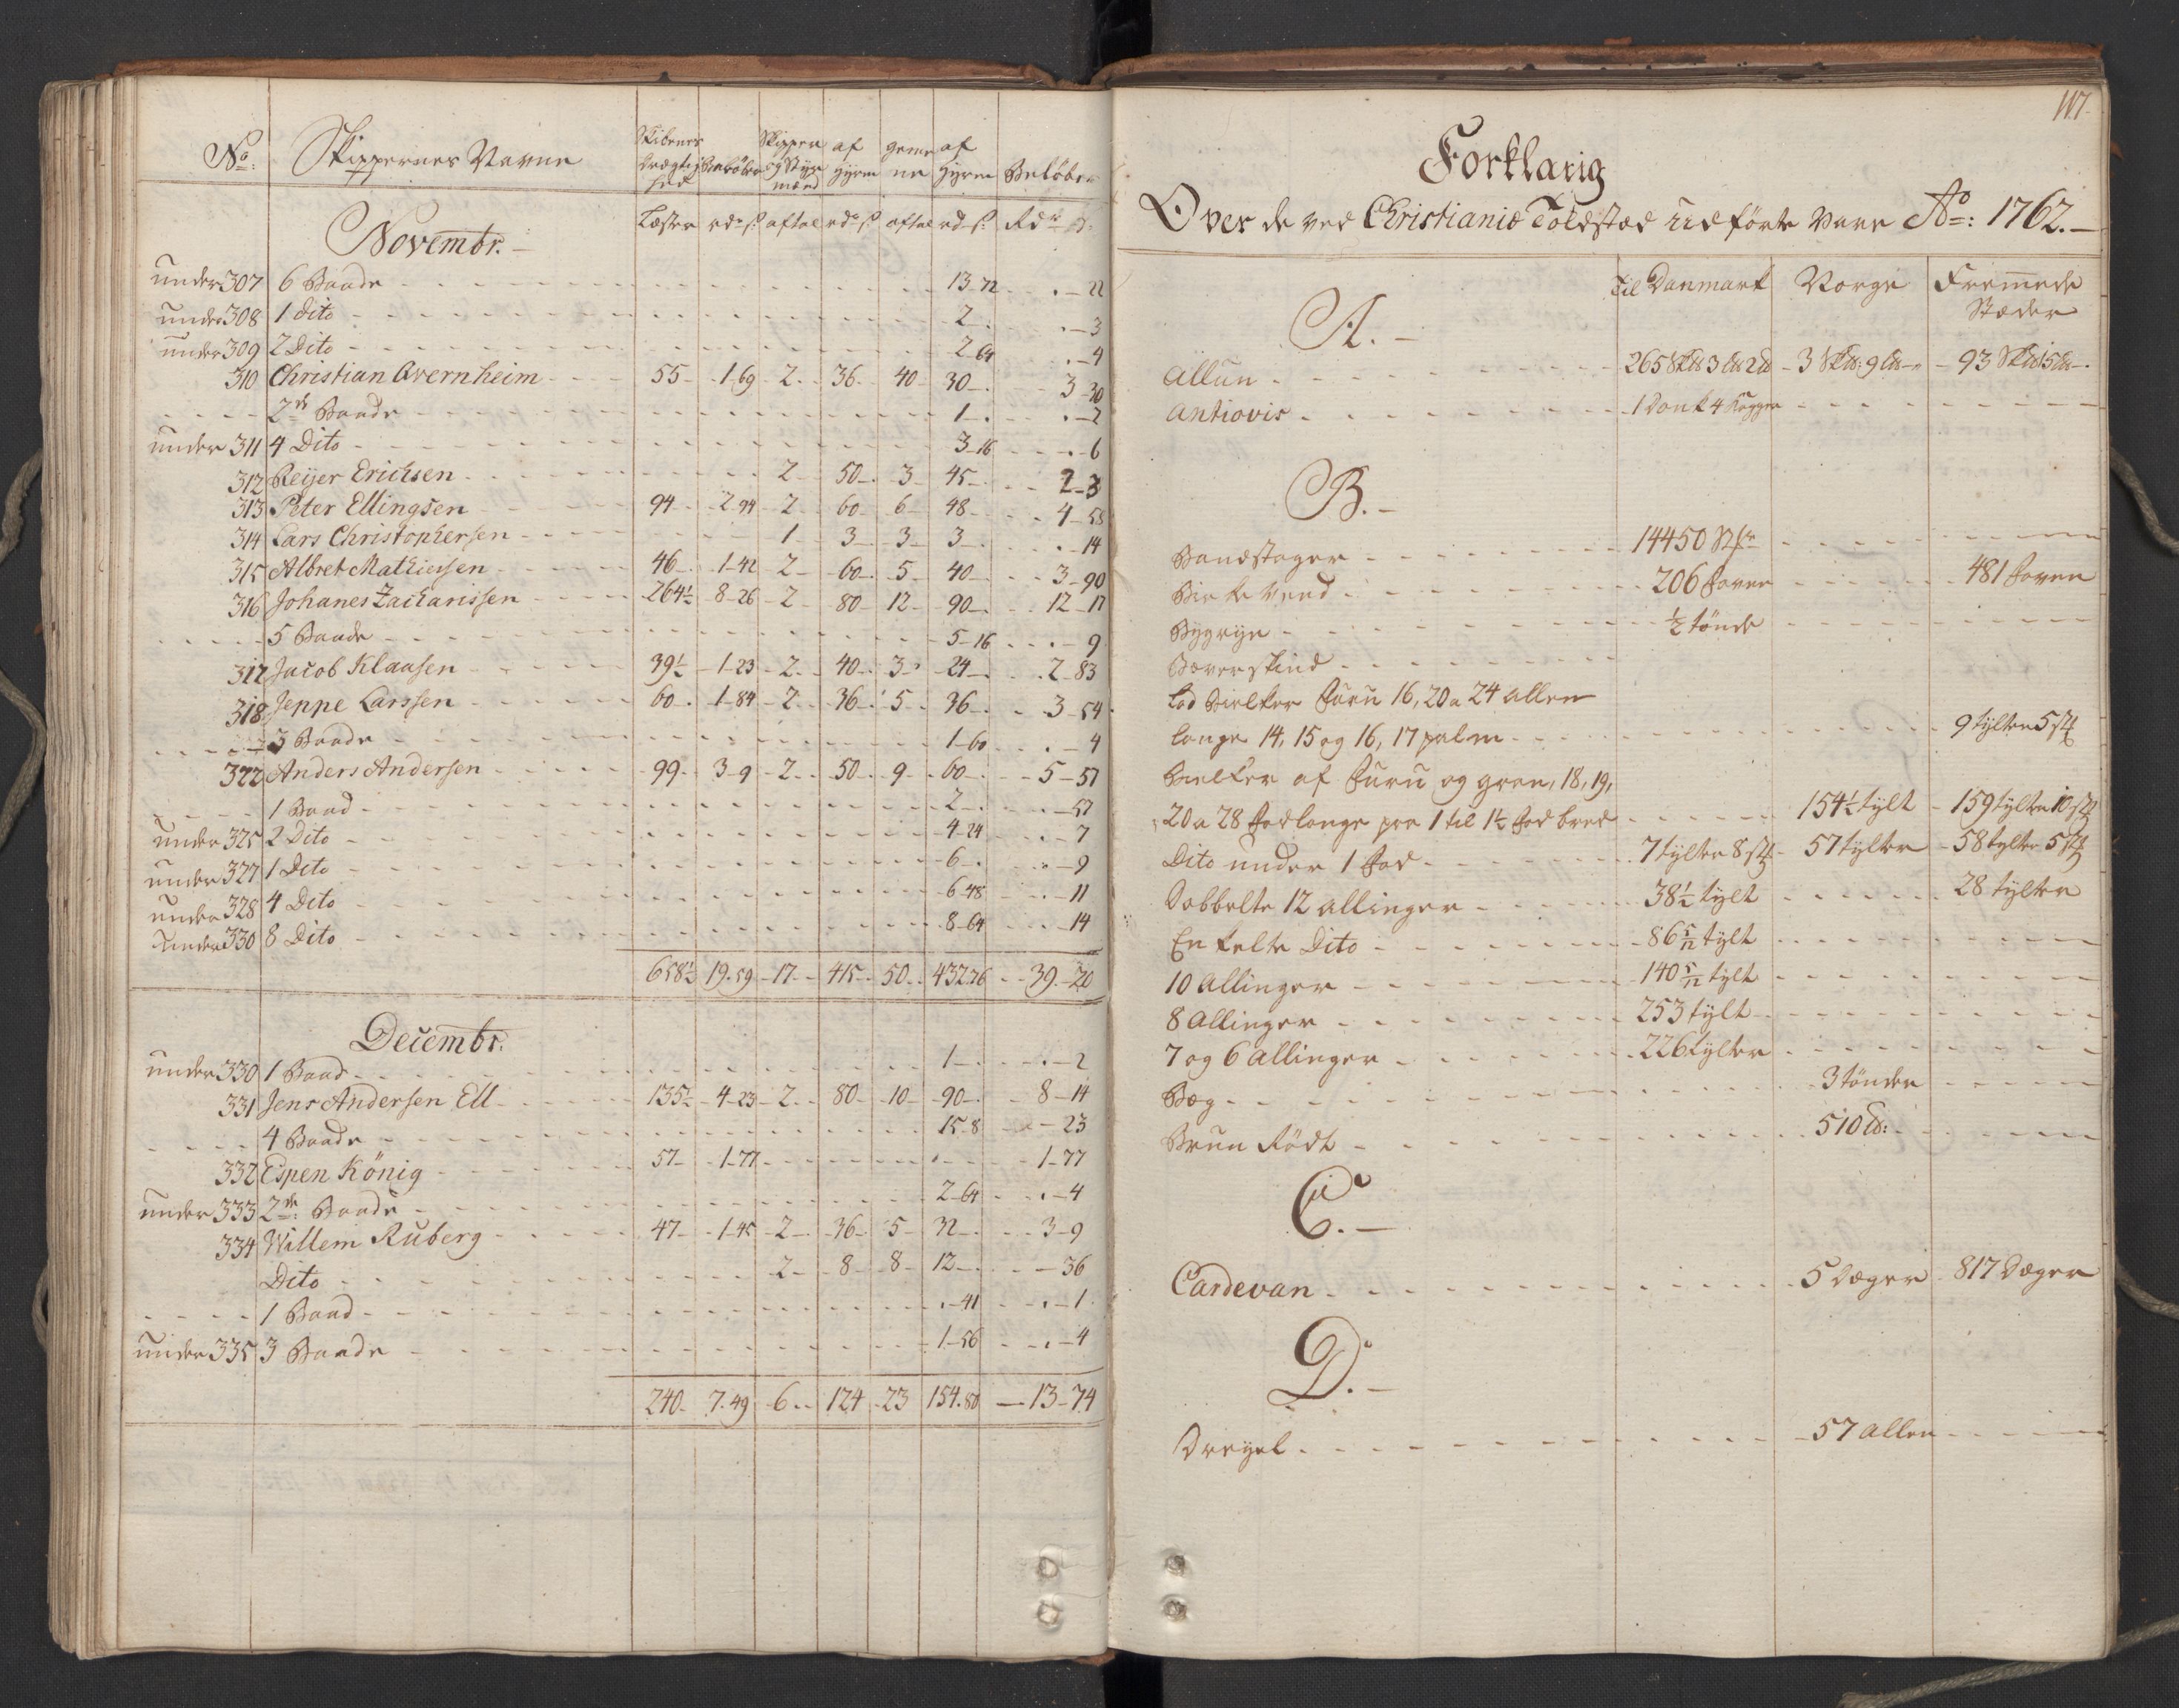 No: Skippernes Navne Skibenes Drægtighed Beløber Skipper og Styrmænd af Hyren gemene af Hyren Beløber
Læster rdr ß aftal rdr ß aftal rd ß Rdr ß
Novembr.
under 307 6 Baade 13-72 .-22
under 308 1 Dito 2-. .-3
under 309 2 Dito 2-64 .-4
310 Christian Avernheim 55 1-69 2 36 40 30-. 3-30
2de Baade 1-. .-2
under 311 4 Dito 3-16 .-6
312 Reijer Erichsen 2 50 3 45 2-3
313 Peter Ellingsen 94 2-94 2 60 6 48 4-58
314 Lars Christophersen 1 3 3 3 .-14
315 Albret Mathiesen 46 1-42 2 60 5 40 3-90
316 Johanes Zacharissen 264½ 8-26 2 80 12 90 12-17
5 Baade 5-16 .-9
317 Jacob Klaasen 39½ 1-23 2 40 3 24 2-83
318 Jeppe Larssen 60 1-84 2 36 5 36 3-54
3 Baade 1-60 .-4
322 Anders Andersen 99 3-9 2 50 9 60 5-57
1 Baad 2-. -57
under 325 2 Dito 4-24 .-7
under 327 1 Dito 6-. .-9
under 328 4 Dito 6-48 .-11
under 330 8 Dito 8-64 .-14
658½ 19.59 17 415 50 432.26 39-20
Decembr.
under 330 1 Baad 1-. .-2
331 Jens Andersen Ell 135½ 4-23 2 80 10 90 8-14
4 Baade 15-8 .-23
332 Espen König 57 1-77 1-77
under 333 2de: Baade 2-64 .-4
334 Willem Ruberg 47 1-45 2 36 5 32 3-9
Dito 2 8 8 12 -36
1 Baad .-41 .-1
under 335 3 Baade 1-56 .-4
240 7.49 6 124 23 154.80 13-74
117.
Forklarig
Over de ved Christiania Toldstæd udførte Vare Ao: 1762.
Til Danmark Norge Fremmede Stæder
A.
Allun 265 Sk℔ 3 L℔ 2 ℔ 3 Sk℔: 9 L℔ 93 Sk℔ 5 L℔
Antiovis 1 Donk 4 Kagger
B.
Bandstager 14450 Stkr
Birkeved 206 Favne 481 Favne
Byggryn ½ tönde
Bæverskind
Lad Bielker Furu 16, 20 a 24 allen
lange 14, 15 og 16, 17 palm 9 tylter 5 stk
Bielker af Furu og gran, 18, 19,
20 a 28 Fod lange pro 1 til 1½ Fod bred 154½ tylt 159 tylter 10 stk
Dito under 1 Fod 7 tylter 8 stk 57 tylter 58 tylter 5 stk
Dobbelte 12 allinger 38½ tylt 28 tylter
Enkelte Dito 86 5/12 tylt
10 Allinger 140 5/12 tylt
8 Allinger 253 tylt
7 og 6 Allinger 226 tylter
Bæg 3 tönder
Brun Rödt 510 ℔:
C.
Cardevan 5 Dæger 817 Dæger
D.
Dreyel 57 Allen